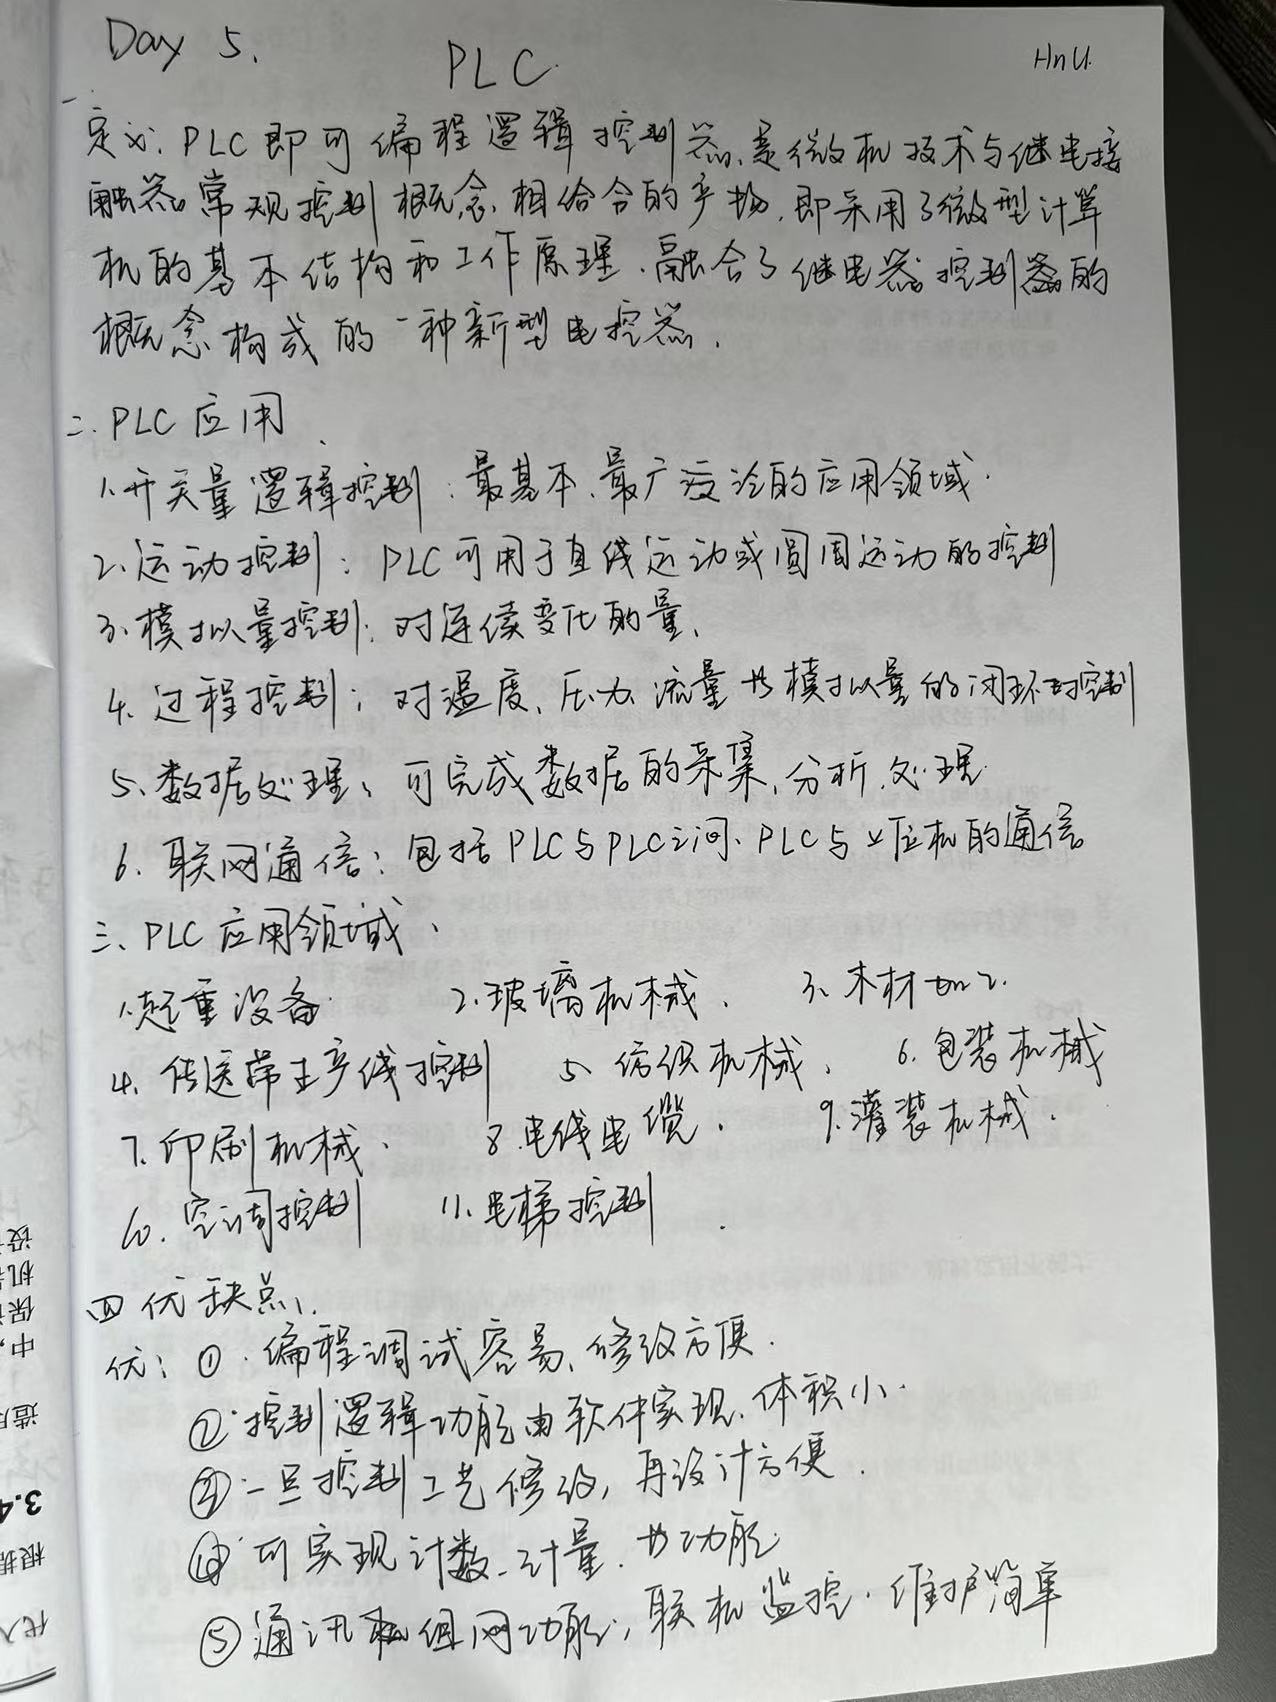 Day 5.
PLC
HnU.
一.
定义: PLC即可编程逻辑控制器、是微机技术与继电接
触器常规控制概念相结合的产物,即采用了微型计算
机的基本结构和工作原理、融合了继电器控制器的
概念构成的一种新型电控器.
二. PLC应用
1.开关量逻辑控制:最基本、最广泛的应用领域.
2.运动控制:PLC可用于直线运动或圆周运动的控制
3、模拟量控制:对连续变化的量.
4.过程控制:对温度、压力 流量等模拟量的闭环控制
5、数据处理:可完成数据的采集、分析、处理.
6.联网通信:包括PLC与PLC之间、PLC与上位机的通信
三、PLC应用领域、
1.起重设备 2.玻璃机械. 3.木材加工.
4.传送带生产线控制 5、纺织机械、 6.包装机械
7.印刷机械、 8.电线电缆. 9.灌装机械.
10.空调控制 11.电梯控制
四 优缺点、
优:①.编程调试容易、修改方便.
②控制逻辑功能由软件实现、体积小.
③一旦控制工艺修改,再设计方便.
④可实现计数、计量、等功能
⑤通讯和组网功能,联机监控.维护简单
设
机
保
中
3.4
根据
代入